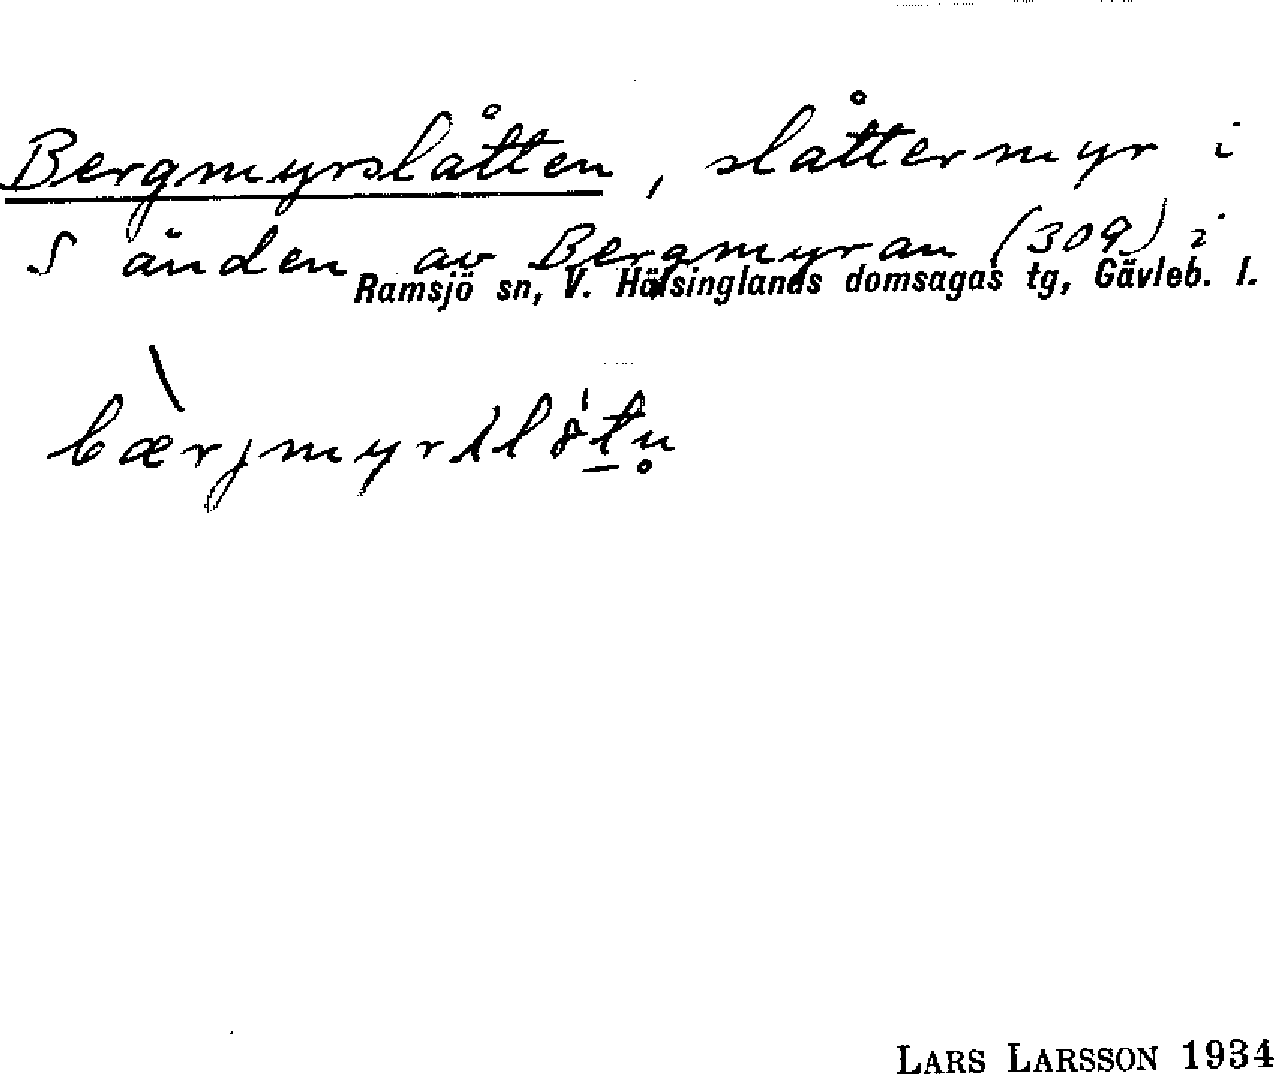 Bergmyrslåtten, slåttermyr i
S änden av Bergmyran (309) i
Ramsjö sn, V. Hälsinglands domsagas tg, Gävleb. l.
LARS LARSSON 1934